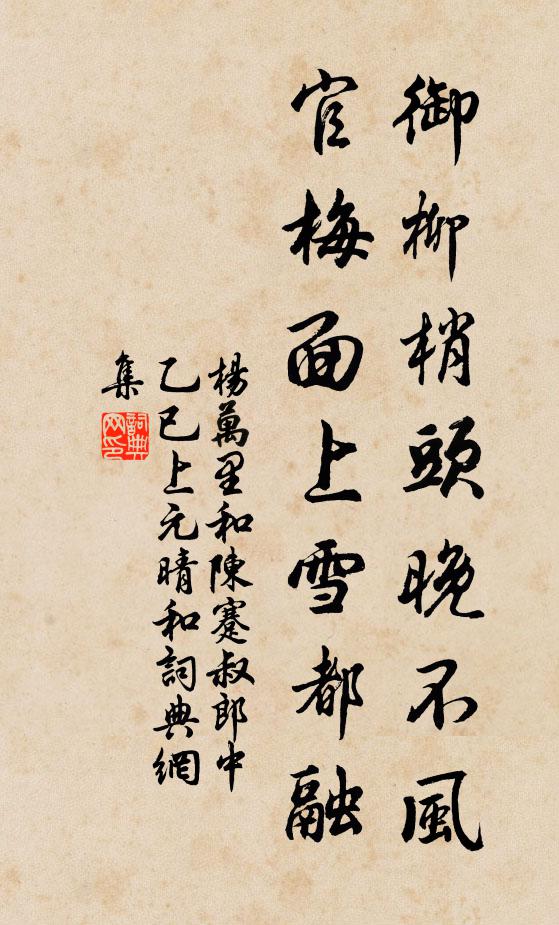 御柳梢頭晚不風
官梅面上雪都融
楊萬里和陳蹇叔郎中
乙巳上元晴和詞典網
集
詞典网印